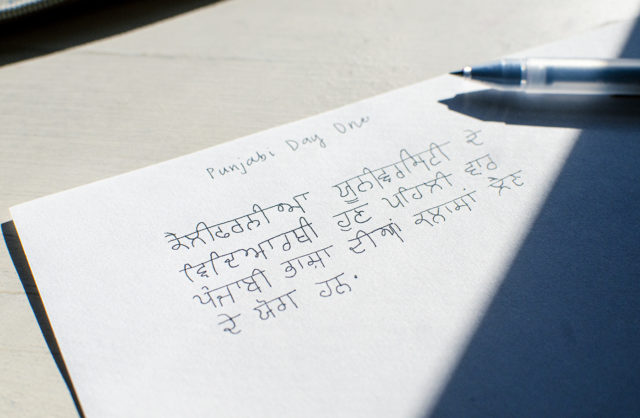 Punjabi Day One
ਕੈਲੀਫੋਰਨੀਆ ਯੂਨੀਵਰਸਿਟੀ ਦੇ
ਵਿਦਿਆਰਥੀ ਹੁਣ ਪਹਿਲੀ ਵਾਰ
ਪੰਜਾਬੀ ਭਾਸ਼ਾ ਦੀਆਂ ਕਲਾਸਾਂ ਲੈਣ
ਦੇ ਯੋਗ ਹਨ.